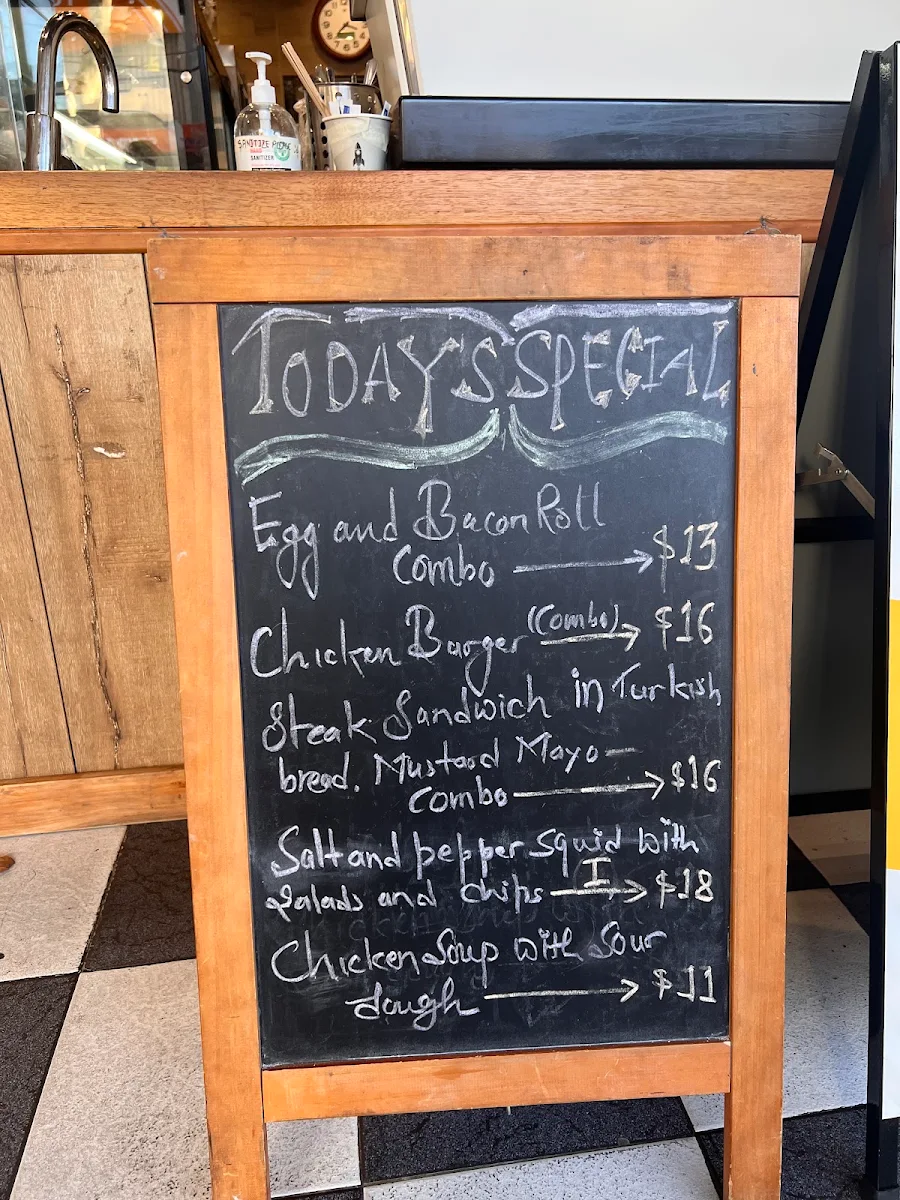 SANITIZE
SANITIZER
TODAY'S SPECIAL
Egg and Bacon Roll
Combo → $13
Chicken Burger (Combo) → $16
Steak Sandwich in Turkish
bread. Mustard Mayo—
Combo → $16
Salt and pepper squid with
Salads and chips → $18
Chicken Soup with Sour
dough → $11